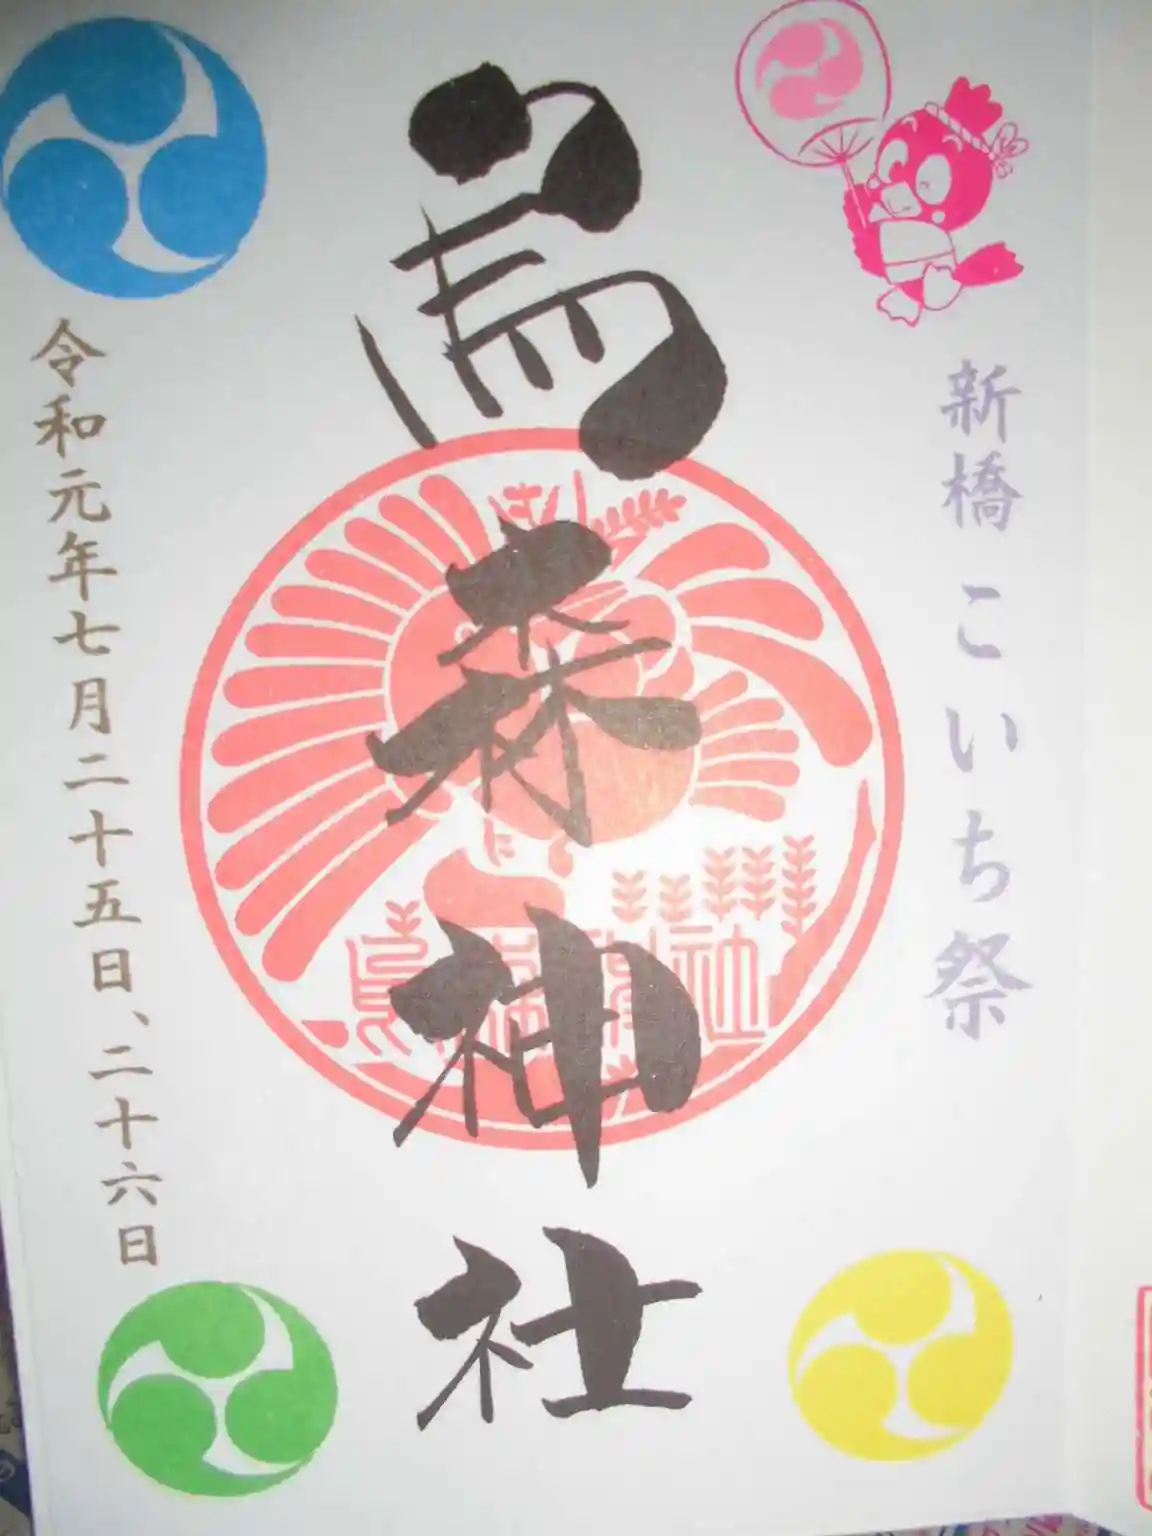 新橋こいち祭
烏森神社
烏森神社
令和元年七月二十五日、二十六日